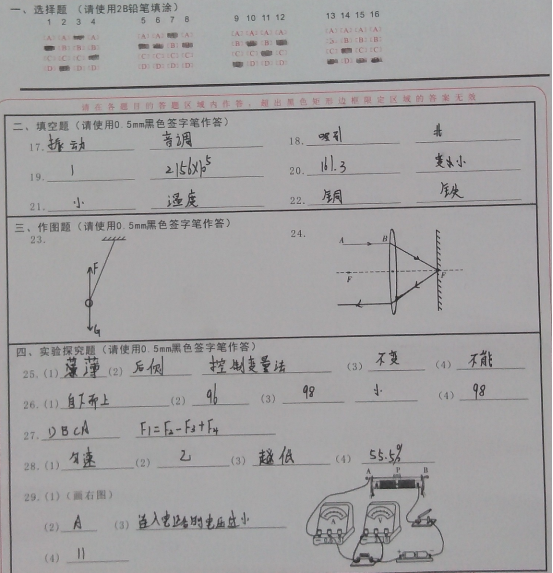 一、选择题 (请使用2B铅笔填涂)
1 2 3 4 5 6 7 8 9 10 11 12 13 14 15 16
请在各题目的答题区域内作答，超出黑色矩形边框限定区域的答案无效
二、填空题(请使用0.5mm黑色签字笔作答)
17. 振动 音调 18. 吸引
19. 1 20. 161.3 变大小
21. 小 温度 22. 铜 铁
三、作图题(请使用0.5mm黑色签字笔作答)
23. 24.
F G A B F F
四、实验探究题(请使用0.5mm黑色签字笔作答)
25. (1) 薄 (2) 后侧 控制变量法 (3) 不变 (4) 不能
26. (1) 自下而上 (2) 96 (3) 98 小 (4) 98
27. DBCA F1=F2-F3+F4
28. (1) 匀速 (2) 乙 (3) 越低 (4) 55.5%
29. (1) (画右图)
A P B
A V
(2) A (3) 连入电路的电压过小
(4) 11